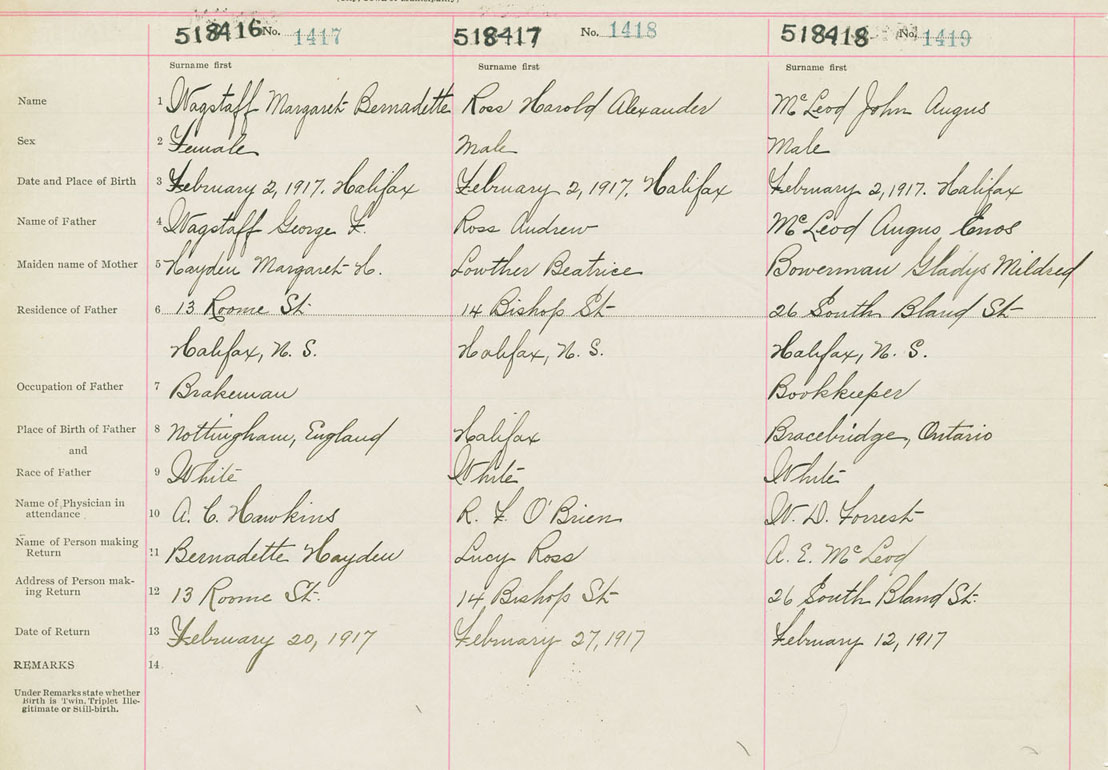 518416 No. 1417 518417 No. 1418 518418 No. 1419
Surname first Surname first Surname first
Name 1 Wagstaff Margaret Bernadette Ross Harold Alexander McLeod John Angus
Sex 2 Female Male Male
Date and Place of Birth 3 February 2, 1917. Halifax February 2, 1917. Halifax February 2, 1917. Halifax
Name of Father 4 Wagstaff George F. Ross Andrew McLeod Angus Enos
Maiden name of Mother 5 Hayden Margaret H. Lowther Beatrice Bowerman Gladys Mildred
Residence of Father 6 13 Roome St. 14 Bishop St 26 South Bland St
Halifax, N. S. Halifax, N. S. Halifax, N. S.
Occupation of Father 7 Brakeman Bookkeeper
Place of Birth of Father 8 Nottingham, England Halifax Bracebridge, Ontario
and
Race of Father 9 White White White
Name of Physician in
attendance 10 A. C. Hawkins R. F. O'Brien W. D. Forrest
Name of Person making
Return 11 Bernadette Hayden Lucy Ross A. E. McLeod
Address of Person mak-
ing Return 12 13 Roome St. 14 Bishop St 26 South Bland St.
Date of Return 13 February 20, 1917 February 27, 1917 February 12, 1917
REMARKS 14
Under Remarks state whether
Birth is Twin, Triplet Ille-
gitimate or Still-birth.